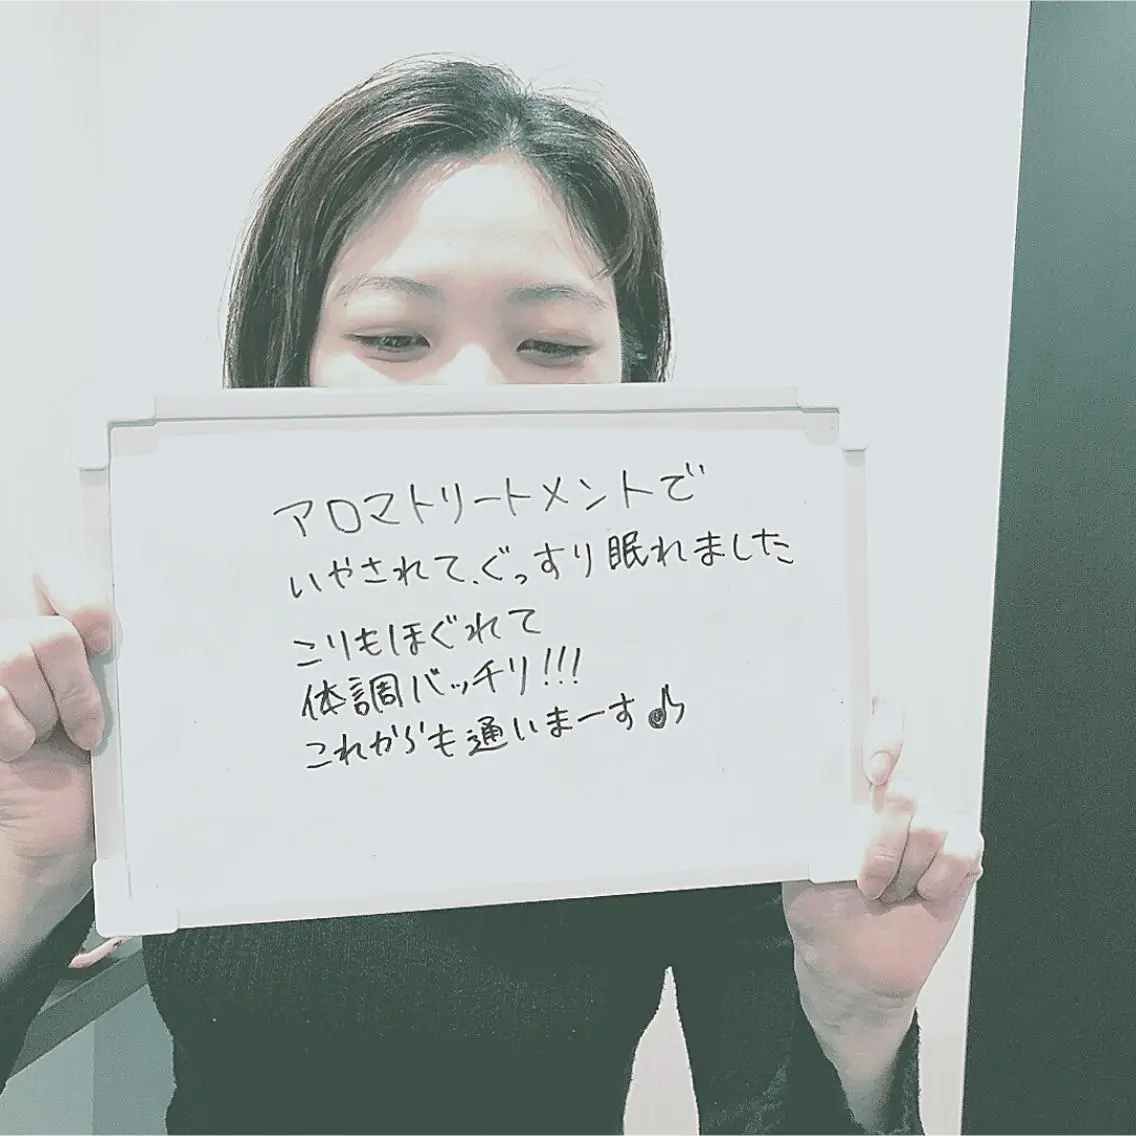 アロマトリートメントで
いやされて、ぐっすり眠れました
こりもほぐれて
体調バッチリ!!!
これからも通いまーす♪